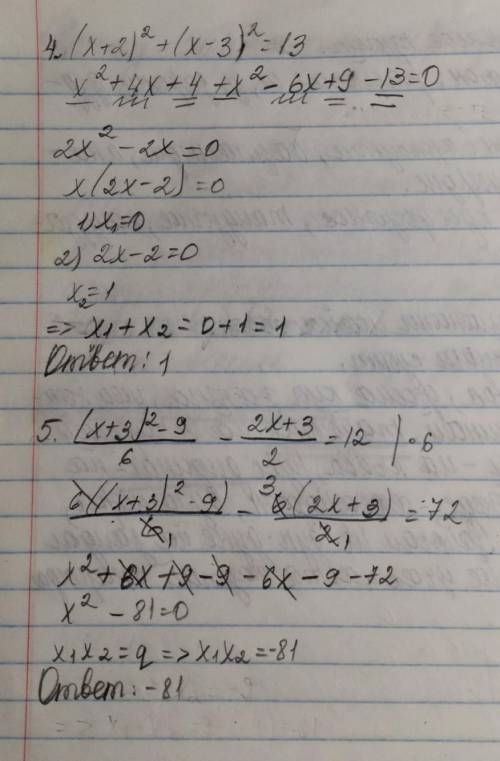 4. (x+2)²+(x-3)²=13
x²+4x+4+x²-6x+9-13=0
2x²-2x=0
x(2x-2)=0
1) x₁=0
2) 2x-2=0
x₂=1
=> x₁+x₂=0+1=1
Ответ: 1
5. ((x+3)²-9)/6 - (2x+3)/2 =12 | •6
6((x+3)²-9)/6₁ - ³6(2x+3)/2₁ =72
x²+6x+9-9-6x-9-72
x²-81=0
x₁x₂=q => x₁x₂=-81
Ответ: -81